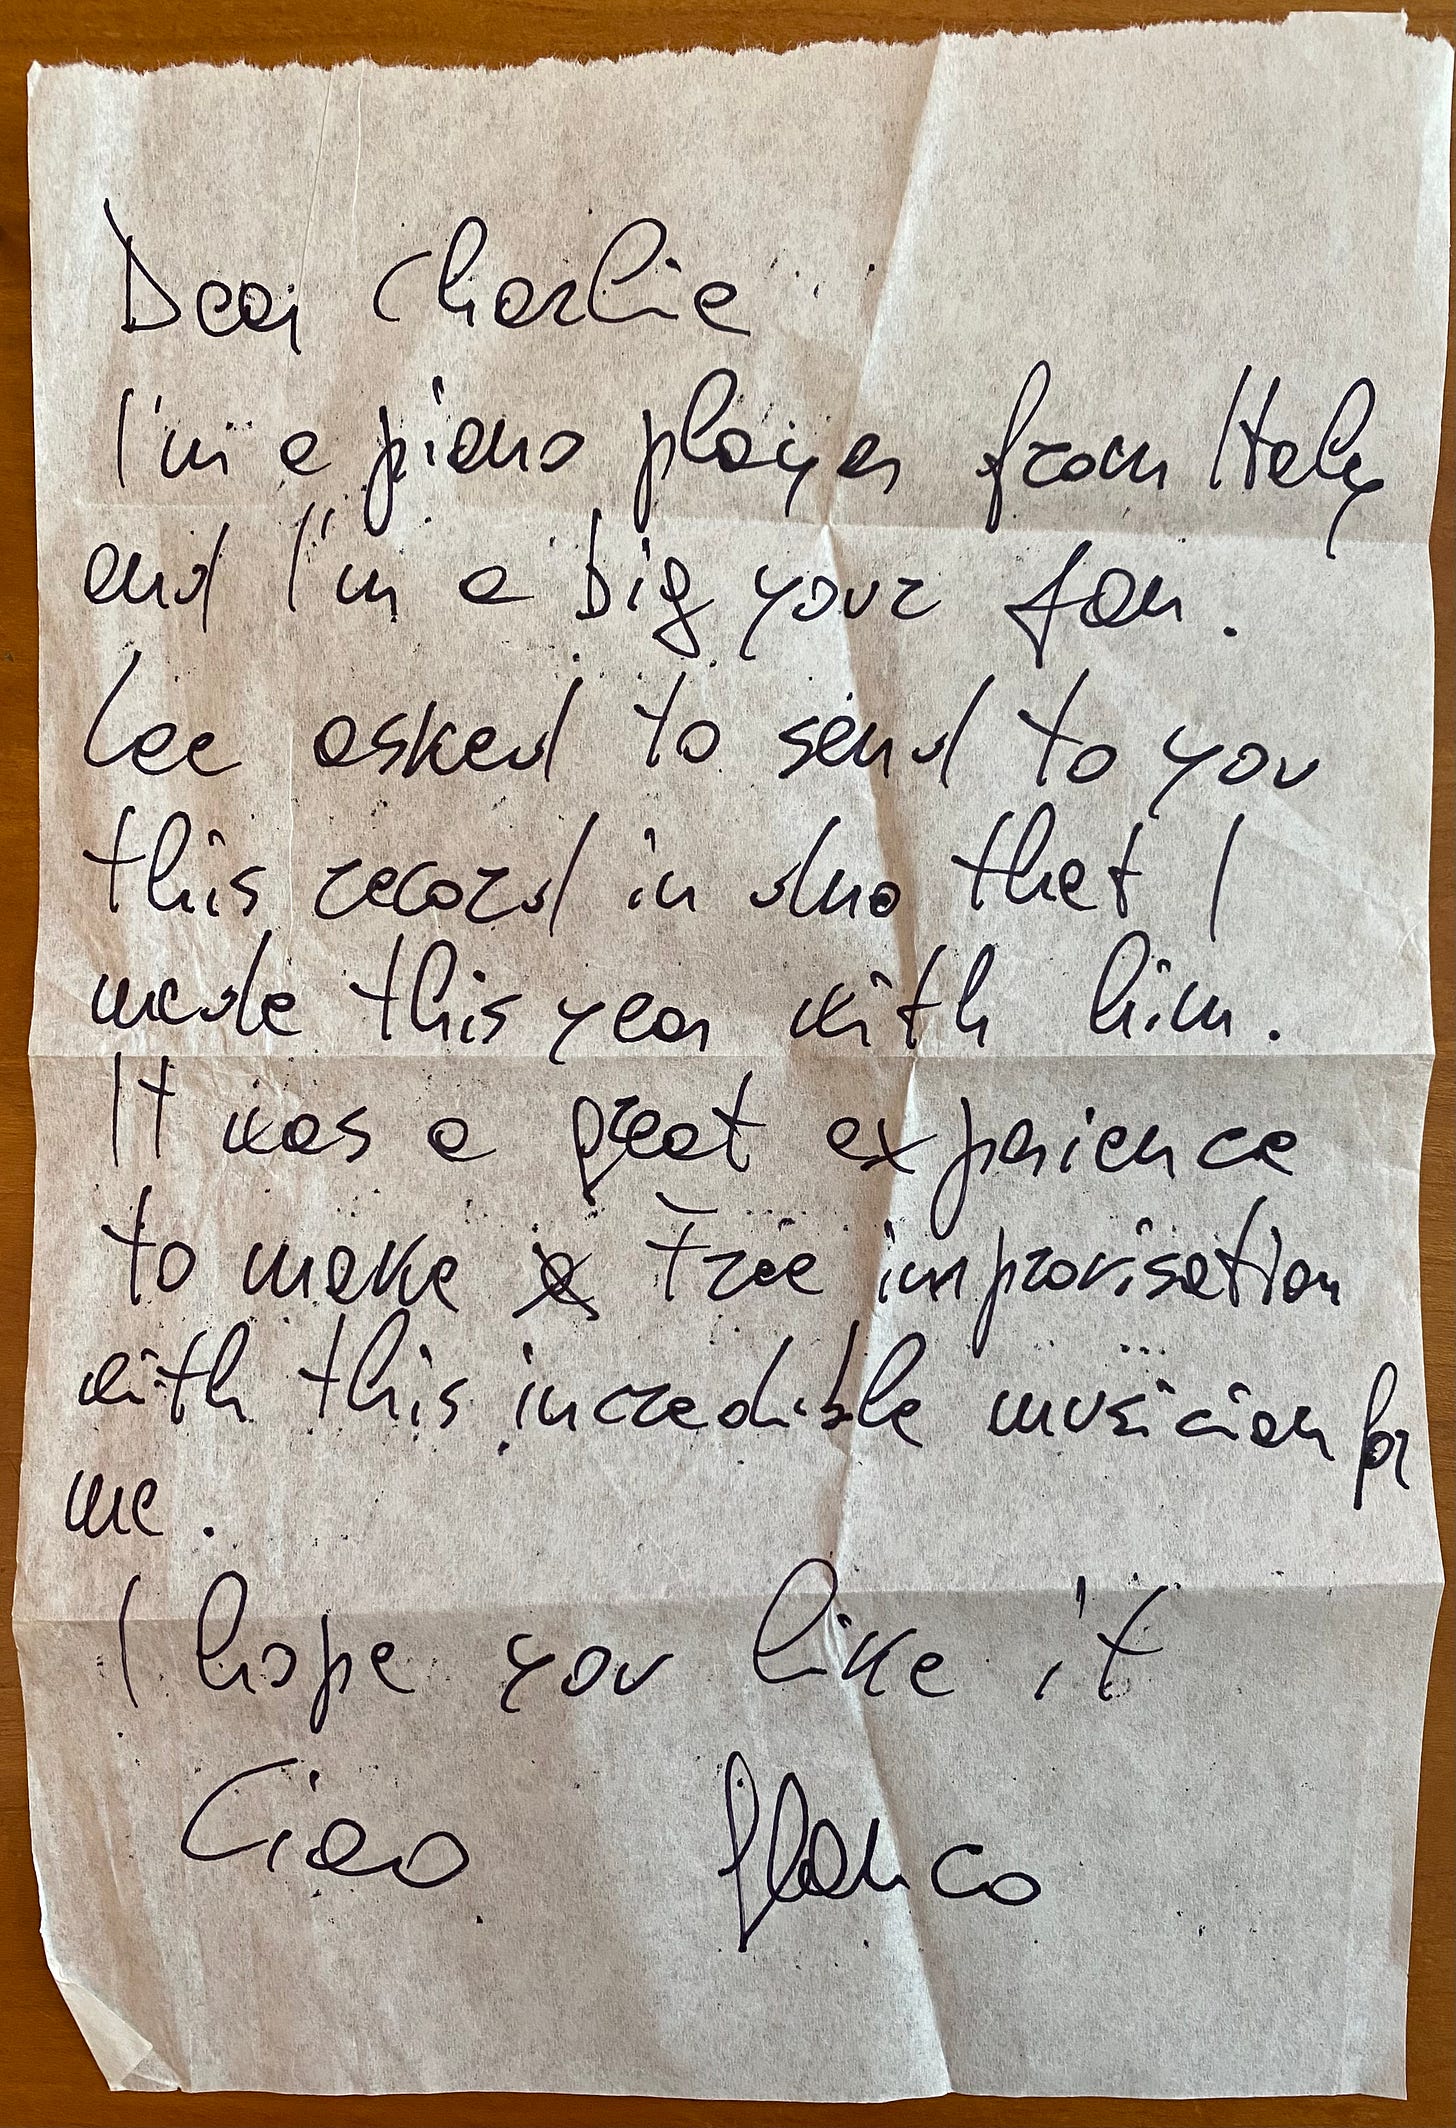 Dear Charlie
I'm a piano player from Italy
and I'm a big your fan.
Lee asked to send to you
this record in duo that I
made this year with him.
It was a great experience
to make free improvisation
with this incredible musician for
me.
I hope you like it
Ciao Franco